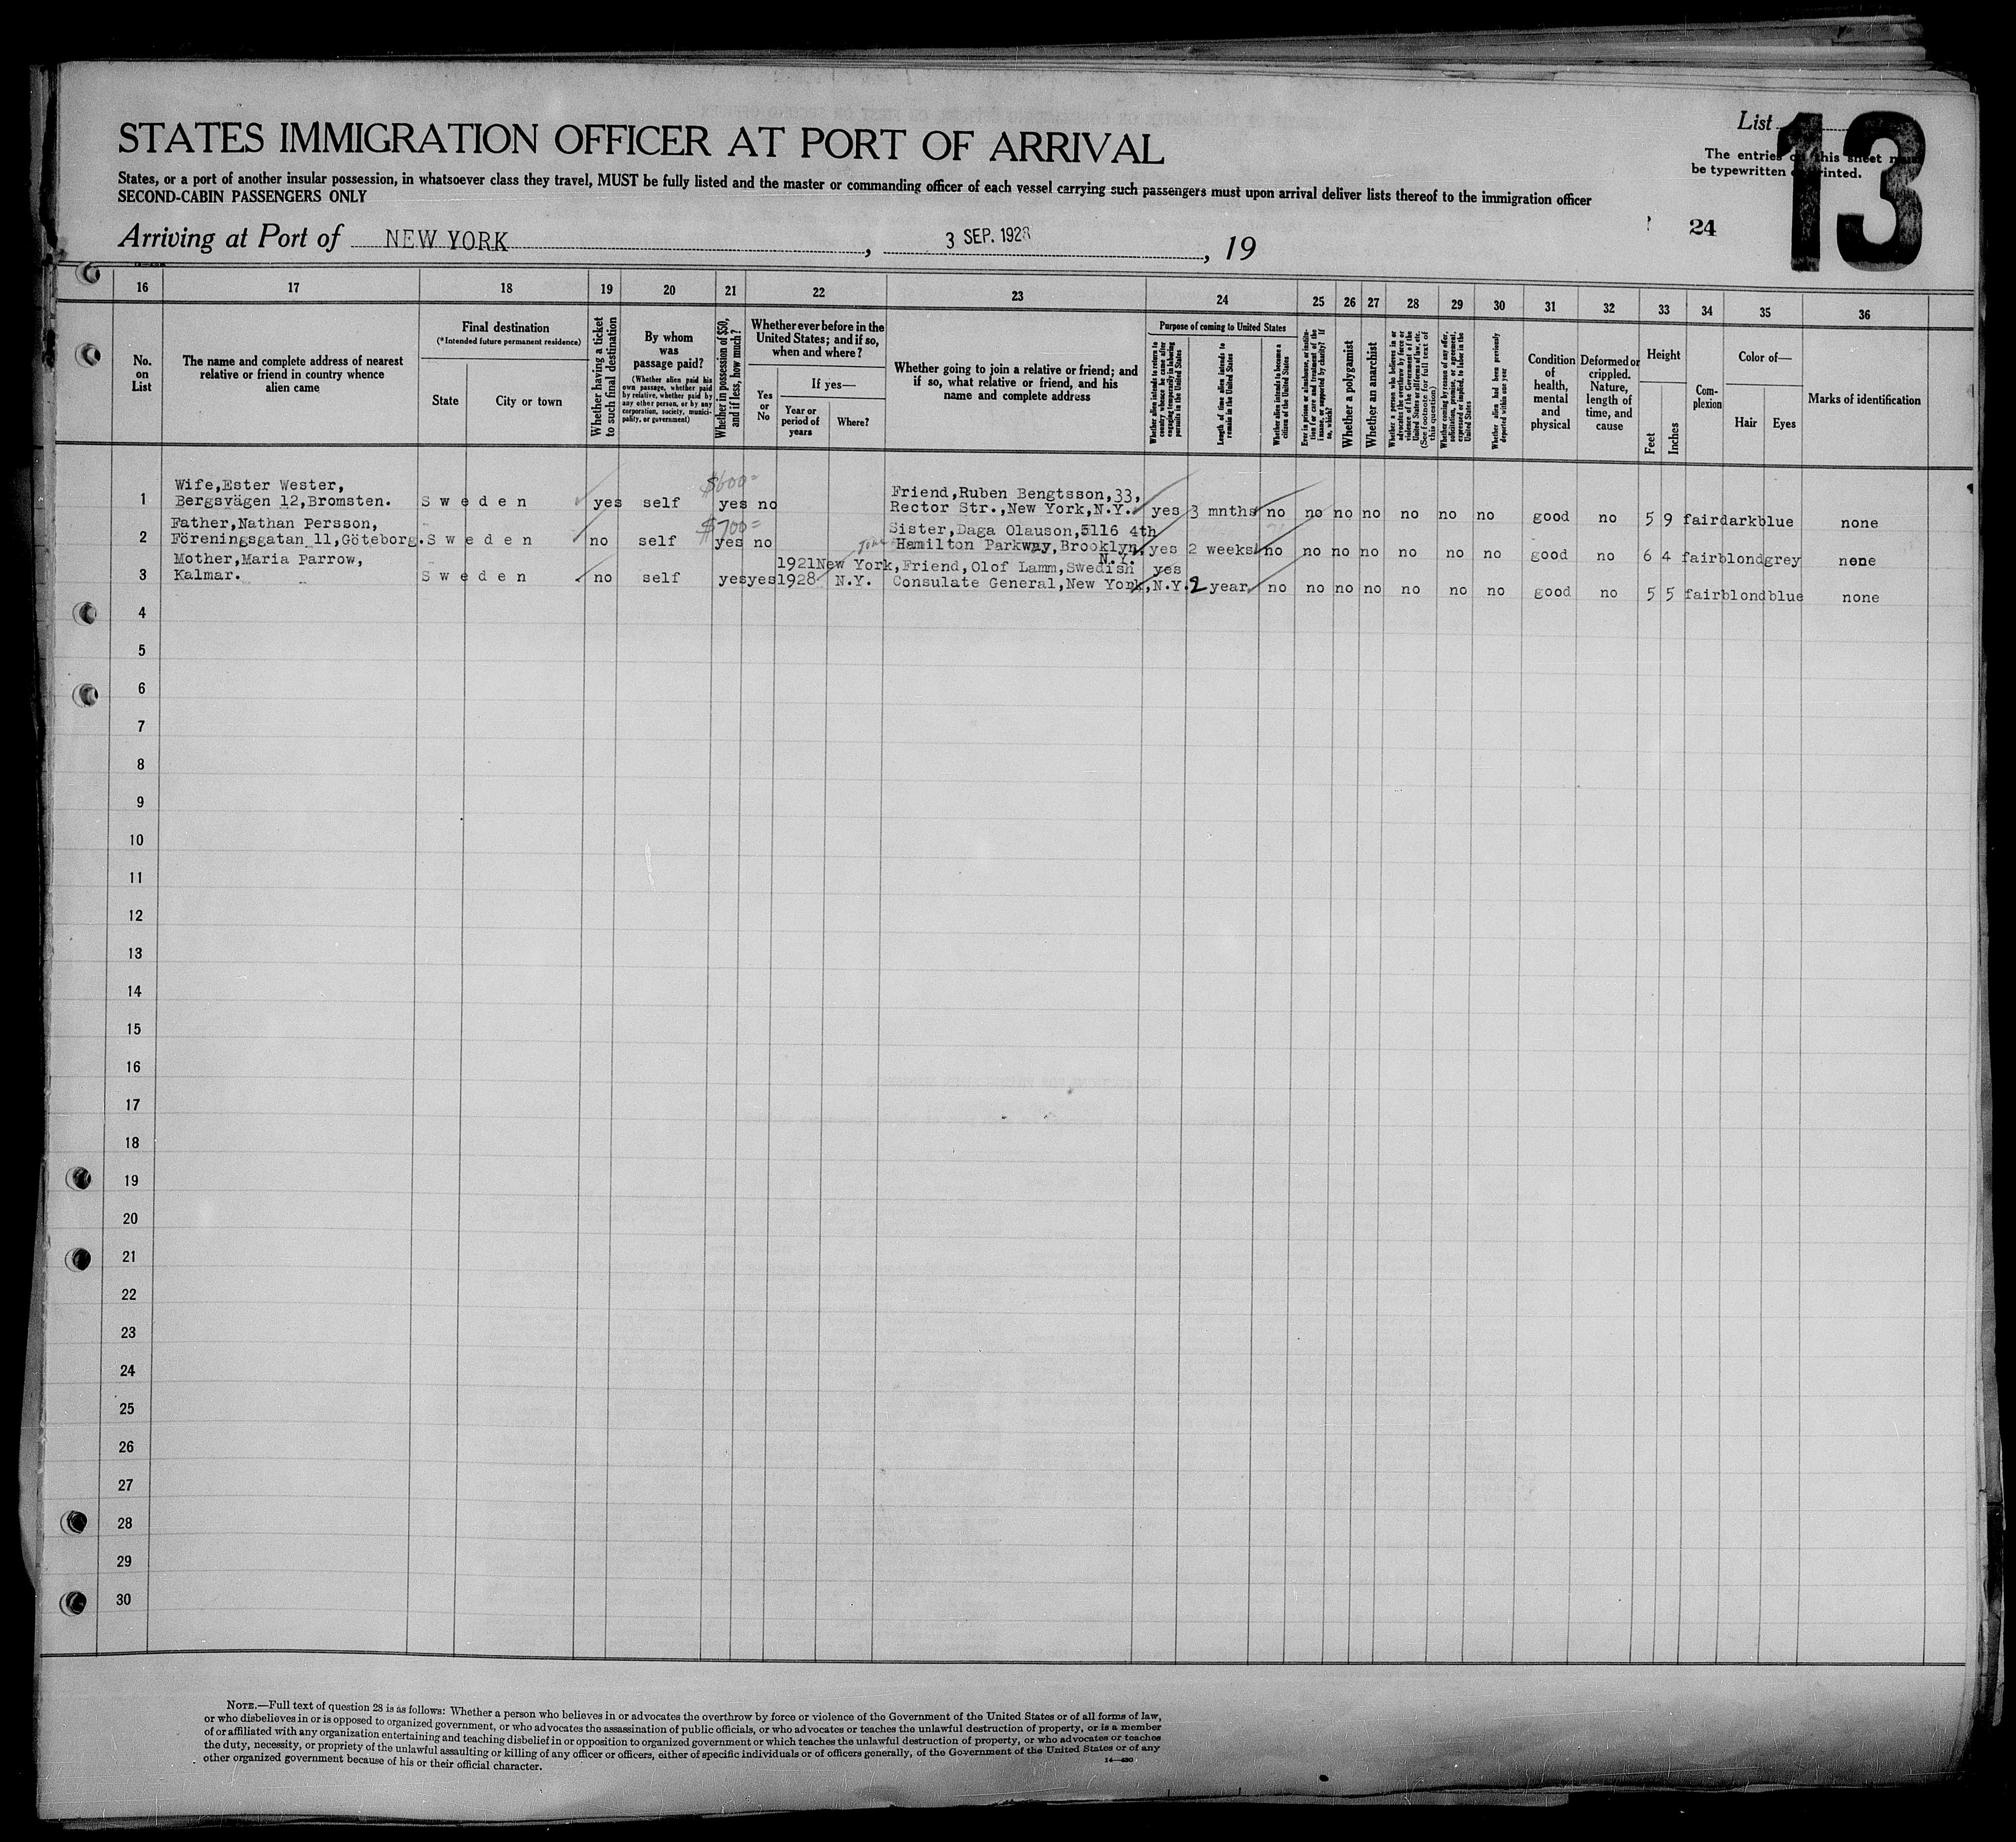 STATES IMMIGRATION OFFICER AT PORT OF ARRIVAL
States, or a port of another insular possession, in whatsoever class they travel, MUST be fully listed and the master or commanding officer of each vessel carrying such passengers must upon arrival deliver lists thereof to the immigration officer
SECOND-CABIN PASSENGERS ONLY
Arriving at Port of NEW YORK, 3 SEP. 1928, 19
List 13
The entries on this sheet must
be typewritten or printed.
24
16 17 18 19 20 21 22 23 24 25 26 27 28 29 30 31 32 33 34 35 36
No. on List
The name and complete address of nearest relative or friend in country whence alien came
Final destination
(*Intended future permanent residence)
State
City or town
Whether having a ticket to such final destination
By whom was passage paid?
(Whether alien paid his own passage, whether paid by relative, whether paid by any other person, or by any corporation, society, municipality, or government)
Whether in possession of $50, and if less, how much?
Whether ever before in the United States; and if so, when and where?
Yes or No
If yes—
Year or period of years
Where?
Whether going to join a relative or friend; and if so, what relative or friend, and his name and complete address
Purpose of coming to United States
Whether alien intends to return to country whence he came after engaging temporarily in laboring pursuits in the United States
Length of time alien intends to remain in the United States
Whether alien intends to become a citizen of the United States
Ever in prison or almshouse, or institution for care and treatment of the insane, or supported by charity? If so, which?
Whether a polygamist
Whether an anarchist
Whether a person who believes in or advocates the overthrow by force or violence of the Government of the United States or all forms of law, etc. (See footnote for full text of this question)
Whether coming by reason of any offer, solicitation, promise, or agreement, expressed or implied, to labor in the United States
Whether alien had been previously deported within one year
Condition of health, mental and physical
Deformed or crippled. Nature, length of time, and cause
Height
Feet
Inches
Complexion
Color of—
Hair
Eyes
Marks of identification
Wife,Ester Wester, $600= Friend,Ruben Bengtsson,33,
1 Bergsvägen 12,Bromsten. Sweden yes self yes no Rector Str.,New York,N.Y. yes 3 mnths no no no no no no no good no 5 9 fair dark blue none
Father,Nathan Persson, $700= Sister,Daga Olauson,5116 4th
2 Föreningsgatan 11,Göteborg. Sweden no self yes no Hamilton Parkway,Brooklyn. yes 2 weeks no no no no no no no good no 6 4 fair blond grey none
N.Y.
Mother,Maria Parrow, 1921 New York, Friend,Olof Lamm,Swedish yes
3 Kalmar. Sweden no self yes yes 1928 N.Y. Consulate General,New York,N.Y. 2 year no no no no no no no good no 5 5 fair blond blue none
4
5
6
7
8
9
10
11
12
13
14
15
16
17
18
19
20
21
22
23
24
25
26
27
28
29
30
NOTE.—Full text of question 28 is as follows: Whether a person who believes in or advocates the overthrow by force or violence of the Government of the United States or of all forms of law,
or who disbelieves in or is opposed to organized government, or who advocates the assassination of public officials, or who advocates or teaches the unlawful destruction of property, or is a member
of or affiliated with any organization entertaining and teaching disbelief in or opposition to organized government or which teaches the unlawful destruction of property, or who advocates or teaches
the duty, necessity, or propriety of the unlawful assaulting or killing of any officer or officers, either of specific individuals or of officers generally, of the Government of the United States or of any
other organized government because of his or their official character.
14—430